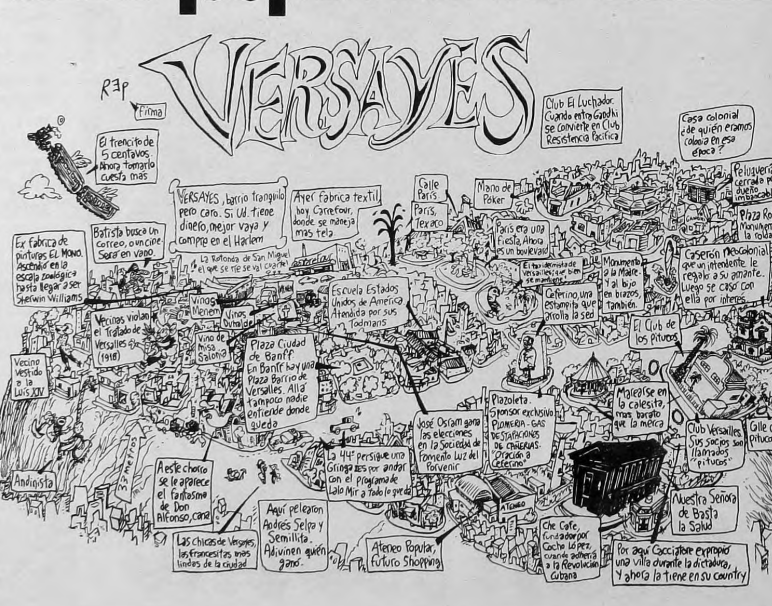 VERSAYES
REP
Firma
El trencito de
5 centavos.
Ahora tomarlo
cuesta más
Club El Luchador.
Cuando entra Gandhi
se convierte en Club
Resistencia Pacífica
Casa colonial
¿de quién eramos
colonia en esa
época?
Peluquería
cerrada por
dueño
VERSAYES, barrio tranquilo
pero caro. Si Ud. tiene
dinero, mejor vaya y
compre en el Harlem
Ayer fabrica textil,
hoy Carrefour,
donde se maneja
más tela
Calle
París
París,
Texas
Mano de
Poker
París era una
Fiesta. Ahora
es un boulevard
Plaza
Monumen
Ex fabrica de
pinturas EL MONO.
Ascendió en la
escala zoológica
hasta llegar a ser
Sherwin Williams
Batista busca un
Correo, o un cine.
Será en vano
La Rotonda de San Miguel
el que se ríe se va al cuartel
Vecinas violan
el Tratado de
Versalles
Vinos
Menem
Vinos
Duhalde
Vino de
Misa
Salonia
Escuela Estados
Unidos de América
Atendida por sus
Todmans
Monumento
a la Madre.
Y al hijo
en brazos,
también.
Caserón neocolonial
que un intendente le
regaló a su amante.
Luego se casó con
ella por interés
Ceferino, una
estampita que
arrolla la sed
El Club de
los pitucos
Vecino
vestido
a la
Luis XIV
Plaza Ciudad
de Banff
En Banff hay una
Plaza Barrio de
Versalles. Allá
tampoco nadie
entiende donde
queda
José Osram gana
las elecciones
en la Sociedad de
Fomento Luz del
Porvenir
Plazoleta.
Sponsor exclusivo
PLOMERIA - GAS
DESTAPACIONES
DE CAÑERIAS.
"Oración a
Ceferino"
Marearse en
la calesita,
más barato
que la merca
Club Versailles.
Sus socios son
llamados
"pitucos"
Andinista
A este chorro
se le aparece
el fantasma
de Don
Alfonso, cana
La 44ª persigue una
Gringa
por andar
con el programa de
Lalo Mir a Todo
Las chicas de Versayes,
las francesitas más
lindas de la ciudad
Aquí pelearon
Andrés Selpa y
Semillita.
Adivinen quién
ganó.
ATENEO
Ateneo Popular,
futuro Shopping
Che Café,
fundado por
Cacho López,
cuando adhería
a la Revolución
Cubana
Nuestra Señora
de Basta
la Salud
Por aquí Cacciatore expropió
una villa durante la dictadura,
y ahora la tiene en su country